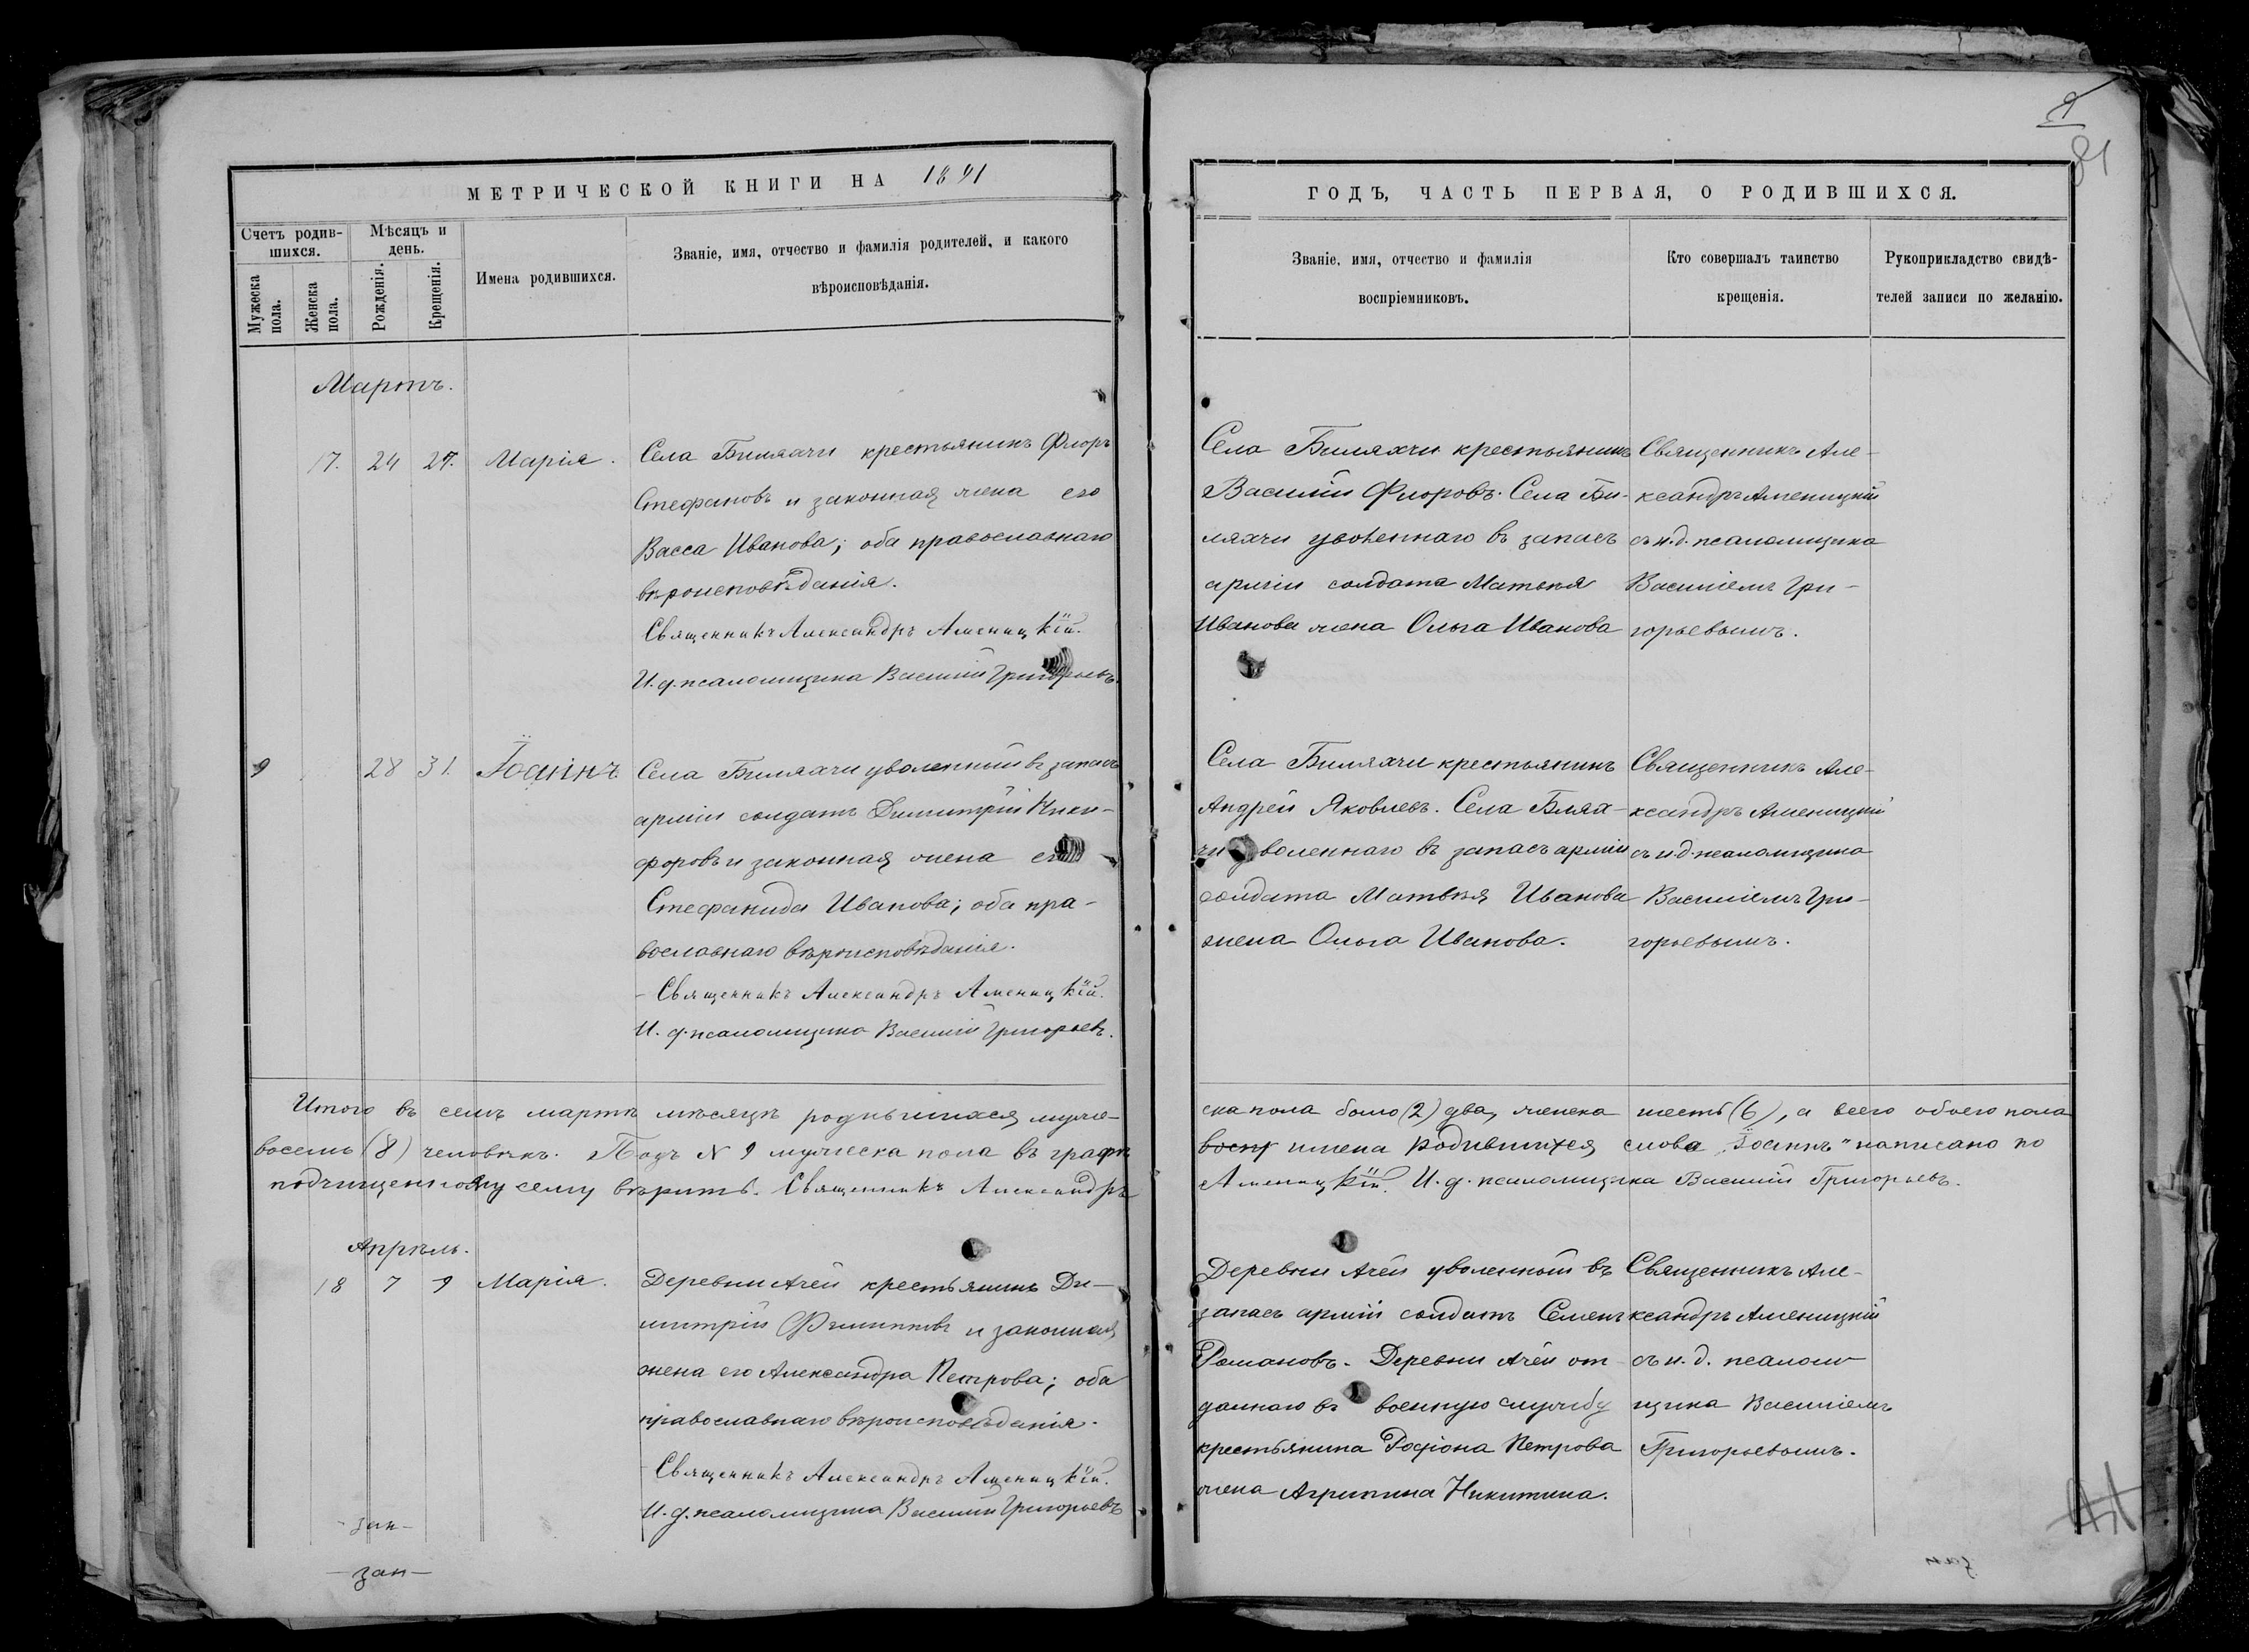 МЕТРИЧЕСКОЙ КНИГИ НА 1891
Счетъ родив-
шихся.
Мѣсяцъ и
день.
Мужеска
пола.
Женска
пола.
Рожденія.
Крещенія.
Имена родившихся.
Званіе, имя, отчество и фамилія родителей, и какого
вѣроисповѣданія.
Мартъ.
17. 24 27. Марія.
Села Билячи крестьянинъ Флоръ
Стефановъ и законная жена его
Васса Иванова; оба православнаго
вѣроисповѣданія.
Священникъ Александръ Аменицкій.
И. д. псаломщика Василій Григорьевъ.
9 28 31. Іоаннъ
Села Билячи уволенный въ запасъ
арміи солдатъ Димитрій Ники-
форовъ и законная жена его
Стефанида Иванова; оба пра-
вославнаго вѣроисповѣданія.
Священникъ Александръ Аменицкій.
И. д. псаломщика Василій Григорьевъ.
Итого въ семъ мартѣ мѣсяцѣ родившихся муже-
восемь (8) человѣкъ. Подъ N 9 мужеска пола въ графѣ
подчищенному сему вѣрить. Священникъ Александръ
Апрѣль.
18 7 9 Марія.
Деревни Ачей крестьянинъ Ди-
митрій Филипповъ и законная
жена его Александра Петрова; оба
православнаго вѣроисповѣданія.
Священникъ Александръ Аменицкій.
И. д. псаломщика Василій Григорьевъ
- зак -
- зак -
9
81
ГОДЪ, ЧАСТЬ ПЕРВАЯ, О РОДИВШИХСЯ.
Званіе, имя, отчество и фамилія
воспріемниковъ.
Кто совершалъ таинство
крещенія.
Рукоприкладство свидѣ-
телей записи по желанію.
Села Биляхчи крестьянинъ
Василій Флоровъ. Села Би-
ляхчи уволеннаго въ запасъ
арміи солдата Матвѣя
Иванова жена Ольга Иванова
Священникъ Але-
ксандръ Аменицкій
съ и. д. псаломщика
Василіемъ Гри-
горьевымъ.
Села Билячи крестьянинъ
Андрей Яковлевъ. Села Блях-
чи уволеннаго въ запасъ арміи
солдата Матвѣя Иванова
жена Ольга Иванова.
Священникъ Але-
ксандръ Аменицкій
съ и. д. псаломщика
Василіемъ Гри-
горьевымъ.
ска пола было (2) два, женска шесть (6), а всего обоего пола
имена родившихся слова „Іоаннъ" написано по
Аменицкій. И. д. псаломщика Василій Григорьевъ.
Деревни Ачей уволенный въ
запасъ арміи солдатъ Семенъ
Романовъ. Деревни Ачей от-
даннаго въ военную службу
крестьянина Родіона Петрова
жена Агрипина Никитина.
Священникъ Але-
ксандръ Аменицкій
съ и. д. псалом-
щика Василіемъ
Григорьевымъ.